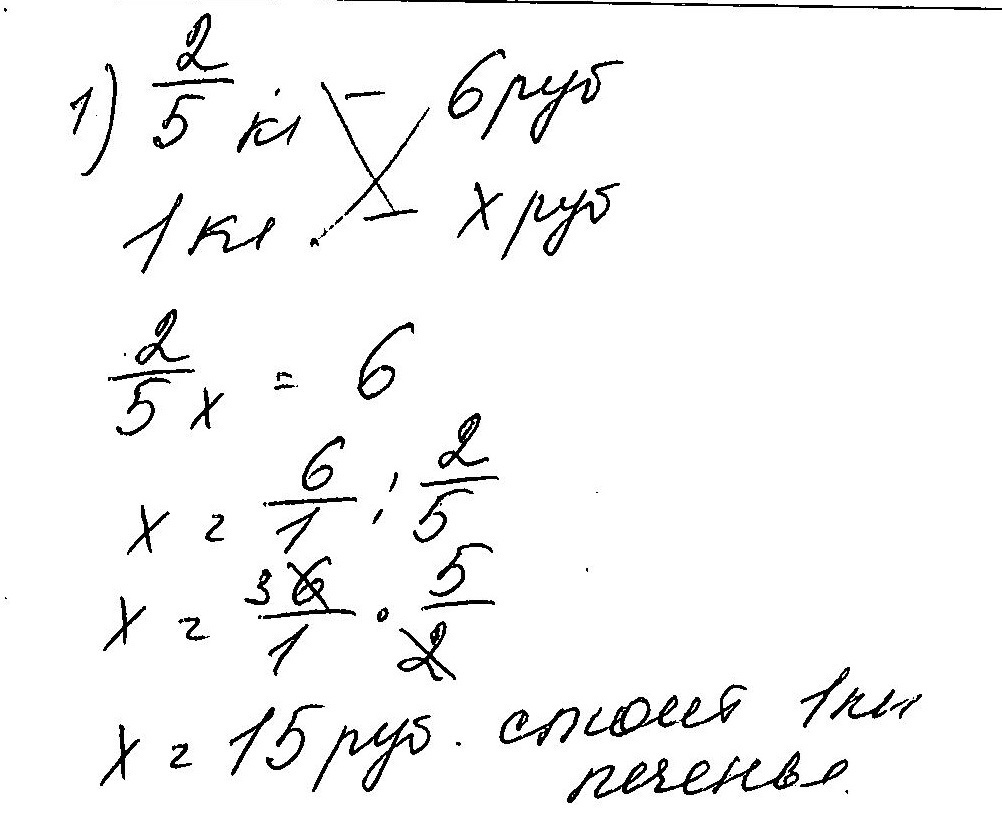 1) 2/5 кг - 6 руб
1 кг - х руб
2/5 х = 6
х = 6/1 : 2/5
х = 3 6/1 · 5/2
х = 15 руб. стоит 1 кг
печенья.